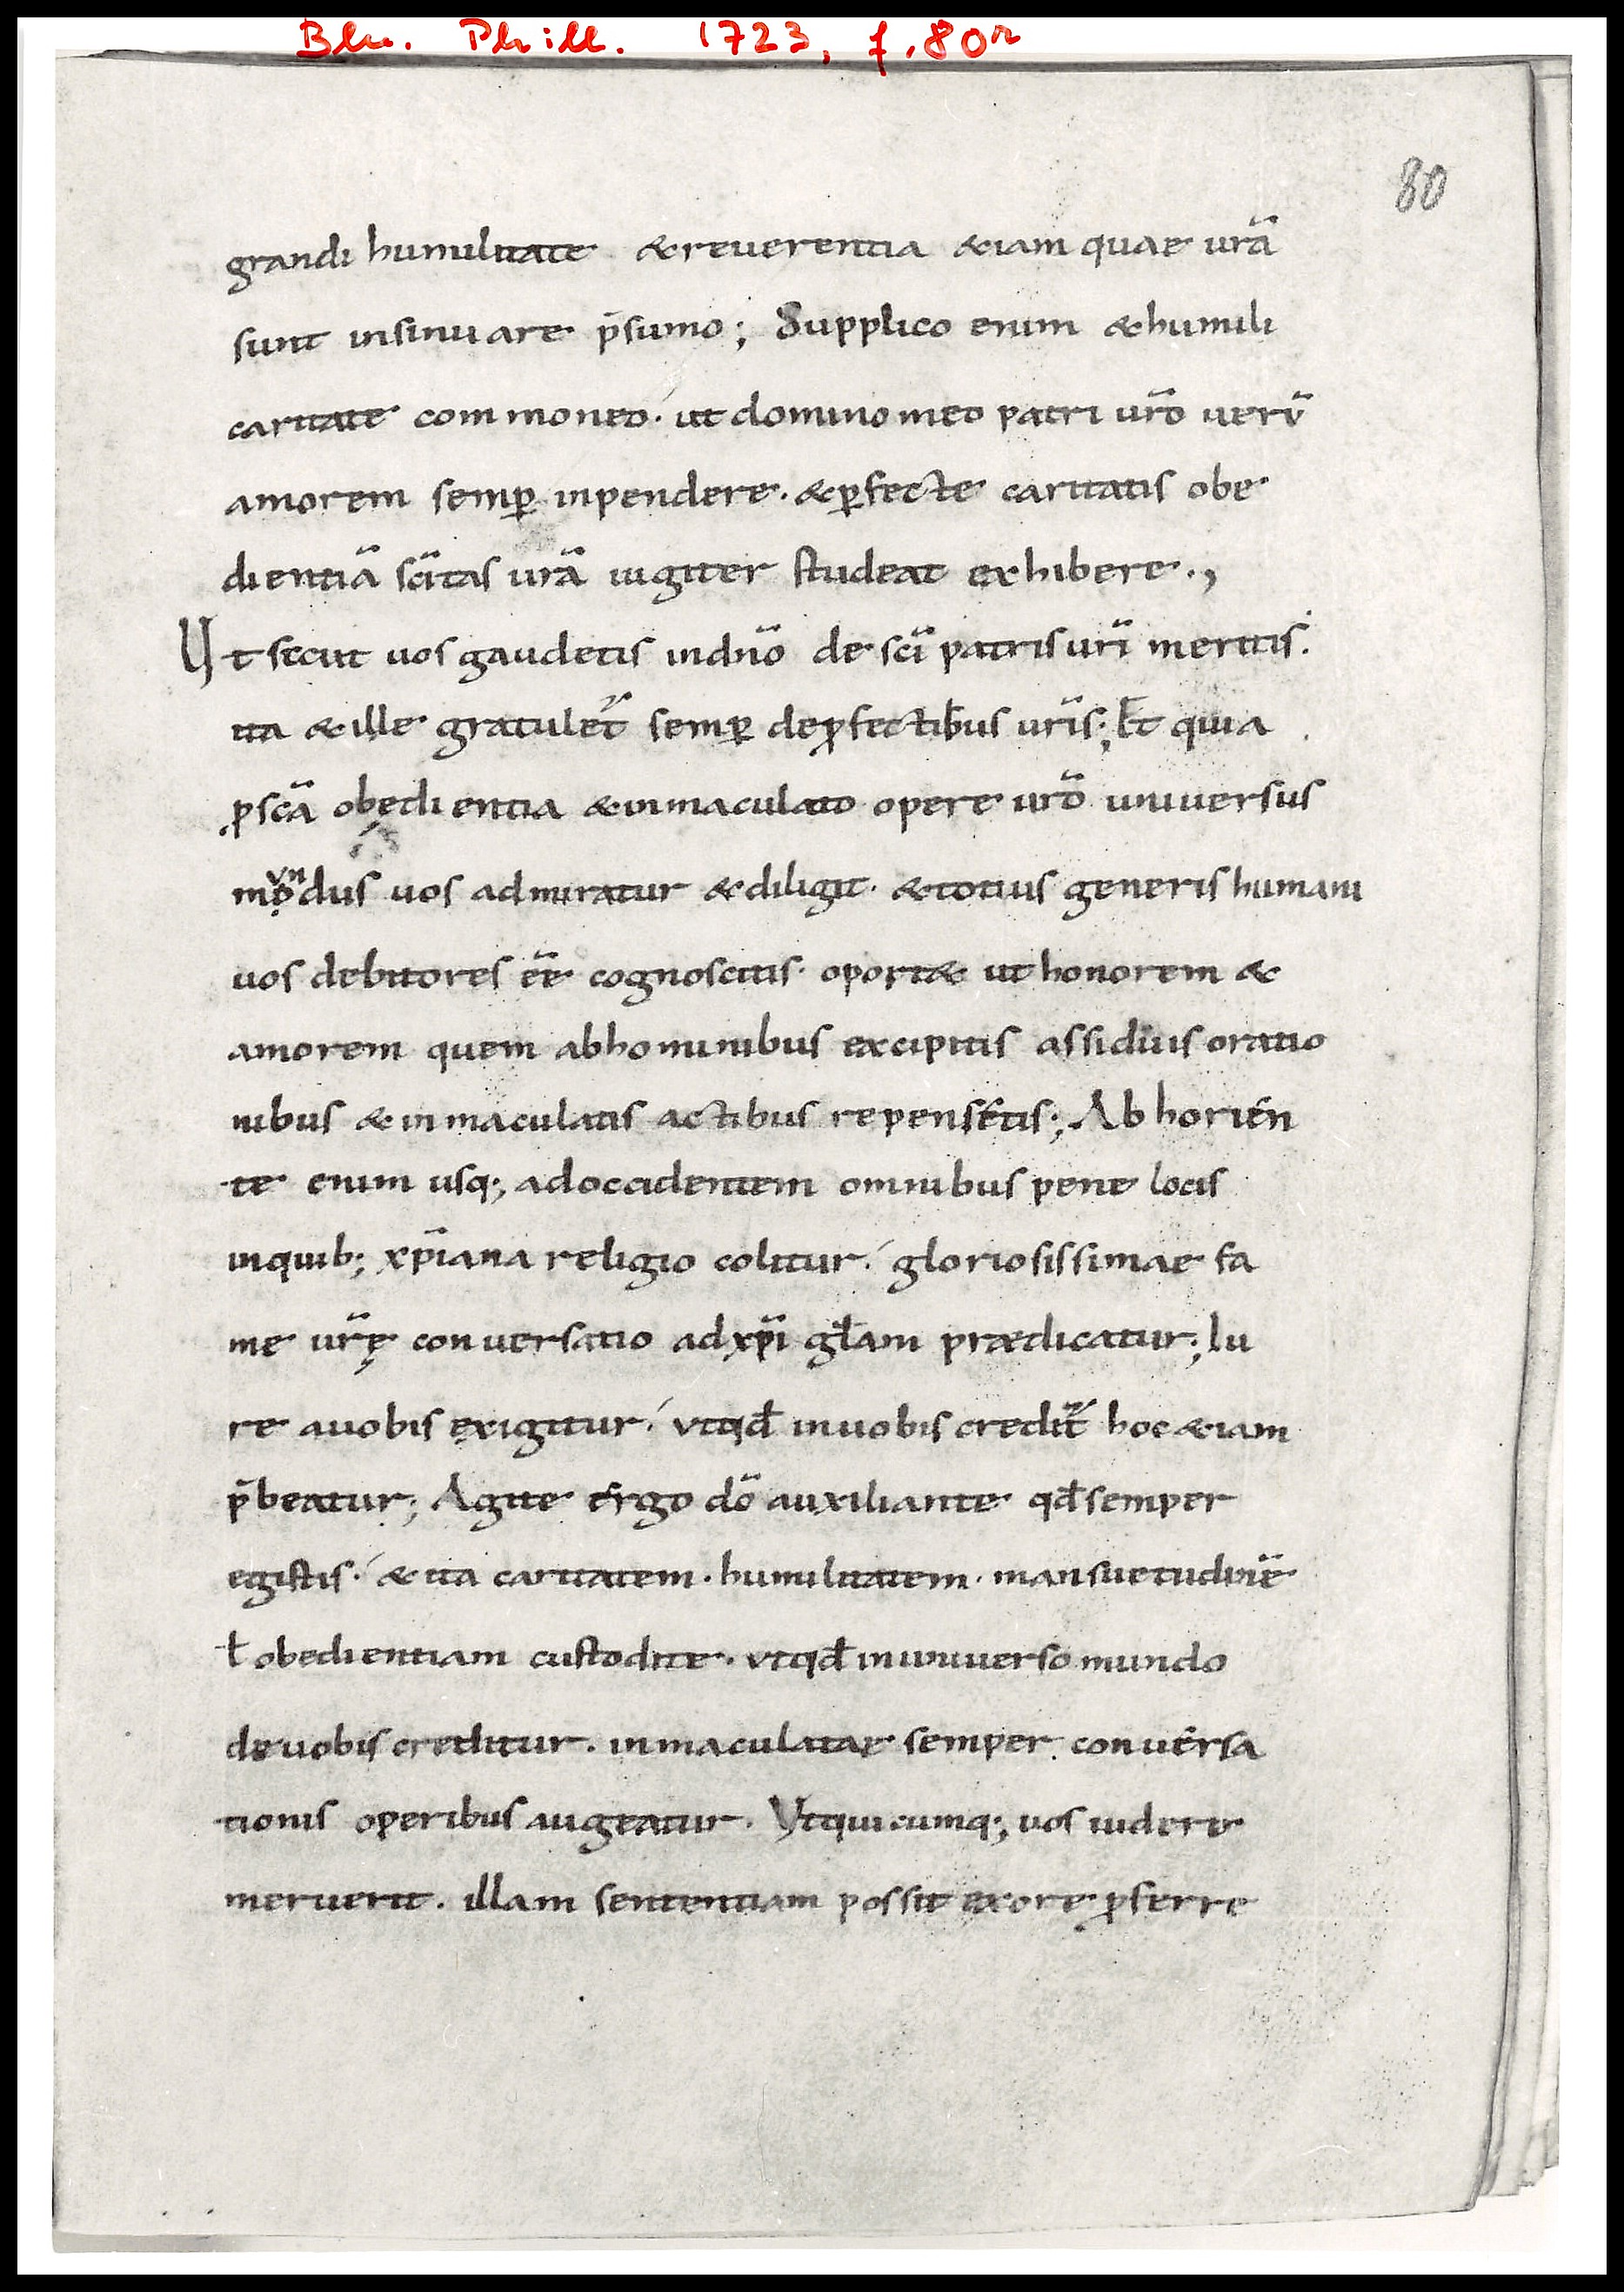 Bln. Phill. 1723, f. 80r
80
grandi humilitate &reuerentia &iam quae ur̄a
sunt insinuare p̄sumo; Supplico enim &humili
caritate commoneo. ut domino meo patri ur̄o uerū
amorem semꝑ inpendere. &ꝑfecte caritatis obe
dientiā sc̄itas ur̄a iugiter studeat exhibere.,
Ut sicut uos gaudetis indn̄o de sc̄i patris ur̄i meritis.
ita &ille gratulet᷑ semꝑ deꝓfectibus ur̄is; Et quia
ꝓ sc̄a obedientia &inmaculato opere ur̄o uniuersus
mọvndus uos admiratur &diligit. &totius generis humani
uos debitores eē cognoscitis. oport& ut honorem &
amorem quem abhominibus excipitis assiduis oratio
nibus &inmaculatis actibus repensetis; Ab horien
te enim usq; adoccidentem omnibus pene locis
inquib; xp̄iana religio colitur. gloriosissimae fa
me ur̄ę conuersatio adxp̄i gl̄am prædicatur; Iu
re auobis exigitur. vtqd̄ inuobis credit᷑ hoc &iam
p̄beatur; Agite ergo dō auxiliante qd̄ semper
egistis. &ita caritatem. humilitatem. mansuetudinē
ł obedientiam custodite. vtqd̄ inuniuerso mundo
deuobis creditur. inmaculatae semper conuersa
tionis operibus augeatur. Vtquicumq; uos uidere
meruerit. illam sententiam possit exore ꝓferre